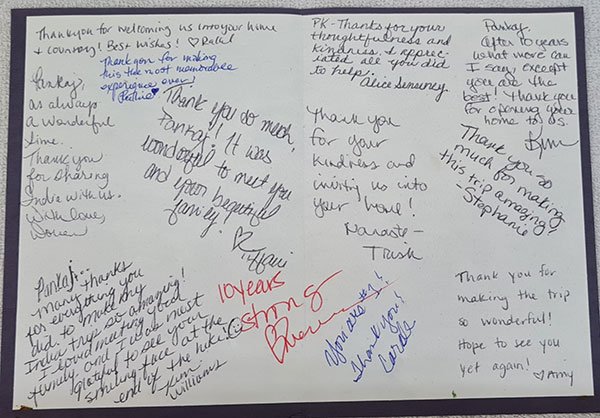 Thankyou for welcoming us into your home
+ country! Best wishes! ♡
Thank you for making
this the most memorable
experience ever!
Pankaj,
as always
a wonderful
time.
Thank you
for sharing
India with us.
With love,
Thank you so much,
Pankaj! It was
wonderful to meet you
and your beautiful
family!
♡ Tiffani
Pankaj...
many thanks
for everything you
did to make my
India trip so amazing!
I loved meeting your
family and I was most
grateful to see your
smiling face at the
end of the hike.
Kim
Williams
10 years
strong
PK - Thanks for your
thoughtfulness and
kindness. I apprec-
iated all you did
to help.
Alice
Thank you
for your
kindness and
inviting us into
your home!
Namaste -
Trish
You are #1!
Thank you!
Carole
Pankaj.
After 10 years
what more can
I say except
you are the
best! Thank you
for opening your
home to us.
Kym
Thank you so
much for making
this trip amazing!
- Stephanie
Thank you for
making the trip
so wonderful!
Hope to see you
yet again!
♡ Amy